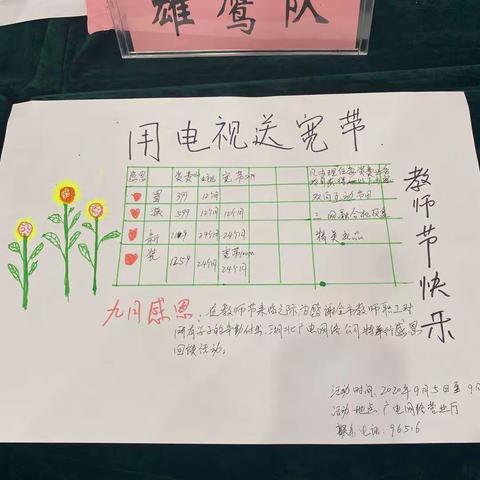 雄鹰队
用电视送宽带
教师节快乐
感恩 资费 电视 宽带
置 399 12个月
换 599 12个月 12个月
新 24个月 24个月
装 1259 24个月 宽带100m 24个月
双向互动节目
三网融合机顶盒
精美礼品
九月感恩：在教师节来临之际为感谢全市教师职工对
所有学子的辛勤付出，湖北广电网络公司特举行感恩
回馈活动。
活动时间：2020年9月5日至9月
活动地点：广电网络营业厅
联系电话：96516